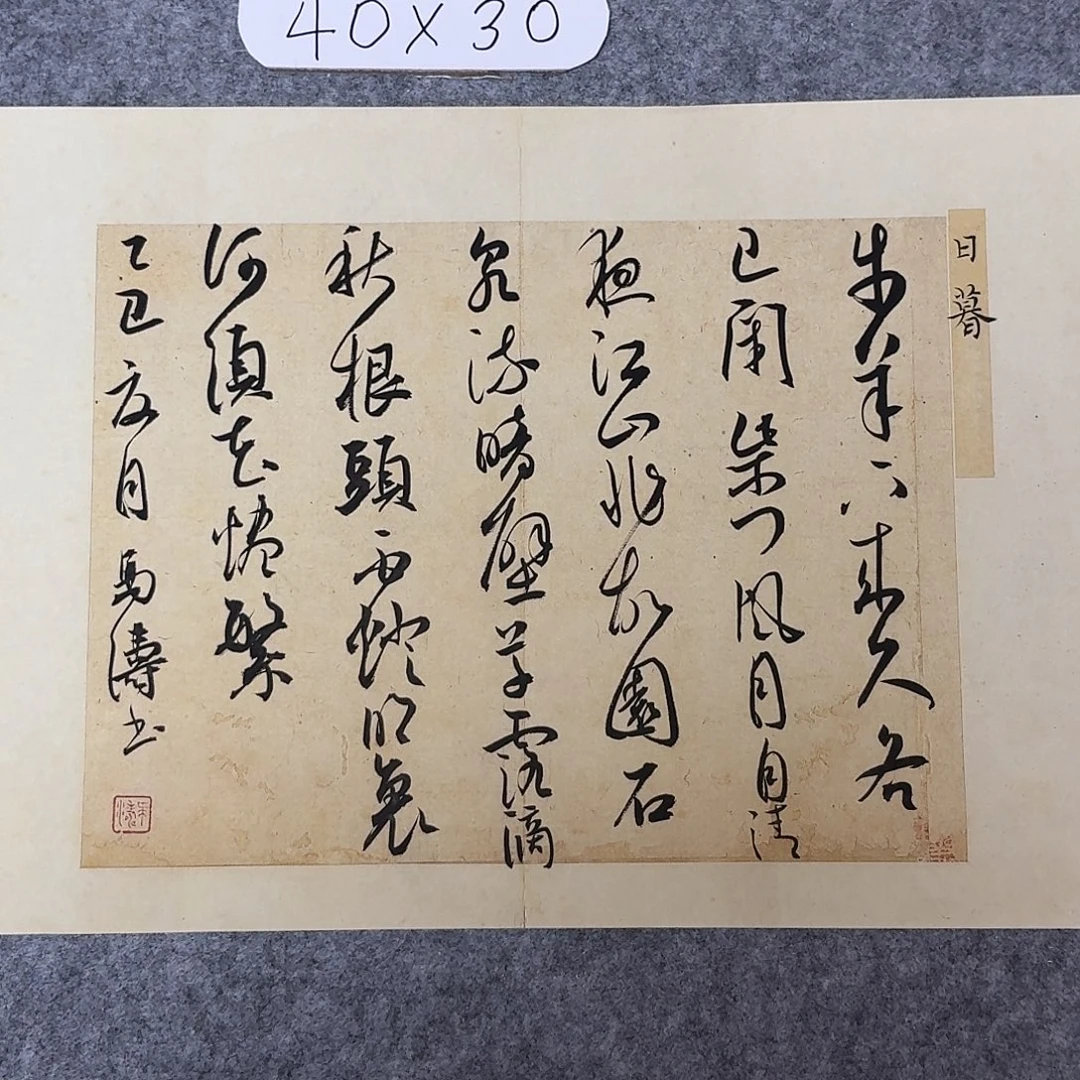 40X30
日暮
牛羊下來久各
已閉柴门風月自清
夜江山非故園石
泉流暗壁草露滴
秋根頭白燈明裏
何須花燼繁
乙巳夏月馬濤书